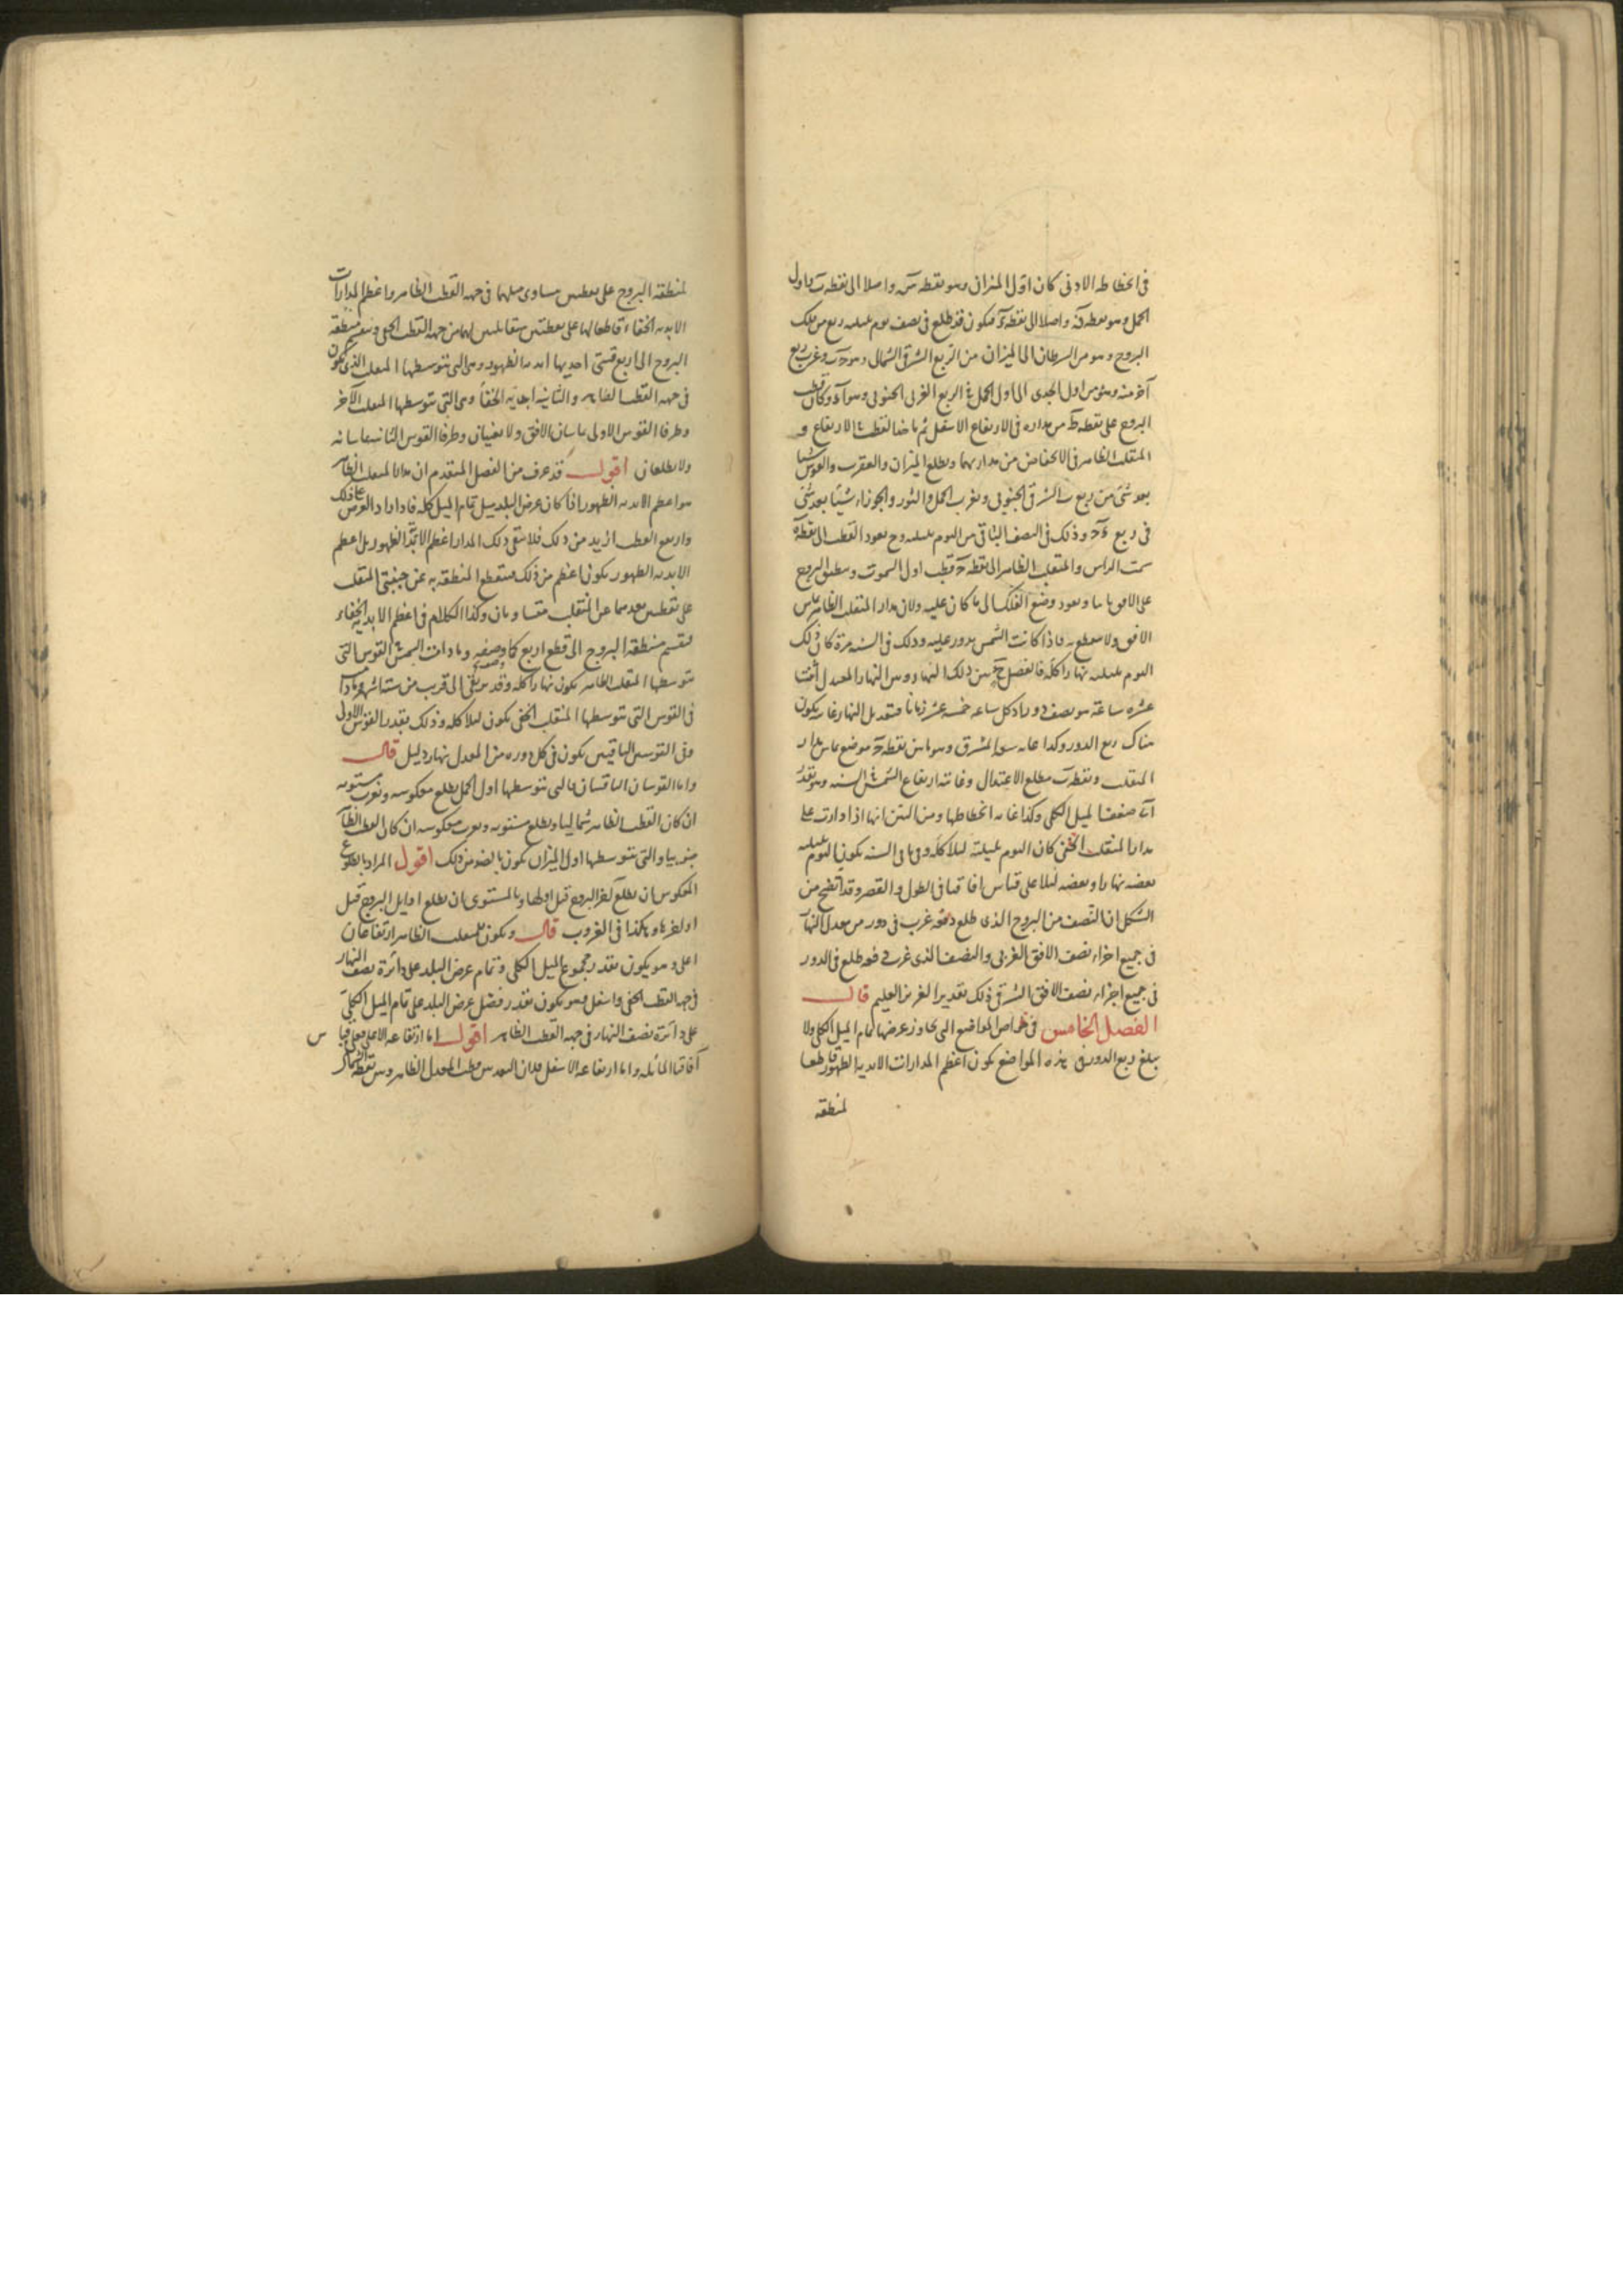 في انحطاطه الادنى كان اول الميزان وهو نقطة واصلا الى نقطة واول
الحمل وهو نقطة واصلا الى نقطة فيكون قد طلع في نصف يوم بليلته ربع من فلك
البروج وهو من السرطان الى الميزان من الربع الشرقي الشمالي وهو وغرب ربع
آخر منه وهو من اول الجدي الى اول الحمل في الربع الغربي الجنوبي وهو وكان قطب
البروج على نقطة من مداره في الارتفاع الاسفل ثم ياخذ القطب في الارتفاع و
المنقلب الظاهر في الانخفاض من مداريهما ويطلع الميزان والعقرب والقوس شيئا
بعد شئ من ربع الشرقي الجنوبي ويغرب الحمل والثور والجوزاء شيئا بعد شئ
في ربع وذلك في النصف الباقي من اليوم بليلته وح يعود القطب الى نقطة
سمت الراس والمنقلب الظاهر الى نقطة قطب اول السموت وينطبق البروج
على الافق ويعود وضع الفلك الى ما كان عليه ولان مدار المنقلب الظاهر يماس
الافق ولا يقطعه فاذا كانت الشمس يدور عليه وذلك في السنة مرة كان ذلك
اليوم بليلته نهارا كله فالفضل ح بين ذلك النهار وبين النهار المعتدل اثنتا
عشرة ساعة هو نصف دور اذ كل ساعة خمسة عشر زمانا فتعديل النهار يكون
هناك ربع الدور وكذا غاية سعة المشرق وهو ما بين نقطة موضع تماس مدار
المنقلب ونقطة مطلع الاعتدال وغاية ارتفاع الشمس في السنة وهو بقدر
ضعف الميل الكلي وكذا غاية انحطاطها ومن البين انها اذا دارت على
مدار المنقلب الخفي كان اليوم بليلته ليلا كله وفي باقي السنة يكون اليوم بليلته
بعضه نهارا وبعضه ليلا على قياس آفاقنا في الطول والقصر وقد اتضح من
الشكل ان النصف من البروج الذي طلع دفعة غرب في دور من معدل النهار
في جميع اجزاء نصف الافق الغربي والنصف الذي غرب دفعه طلع في الدور
في جميع اجزاء نصف الافق الشرقي ذلك تقدير العزيز العليم قال
الفصل الخامس في خواص المواضع التي تجاوز عرضها تمام الميل الكلي ولا
يبلغ ربع الدور في هذه المواضع يكون اعظم المدارات الابدية الظهور قاطعا
لمنطقة
لمنطقة البروج على نقطتين متساوي ميلهما في جهة القطب الظاهر واعظم المدارات
الابدية الخفاء قاطعا لها على نقطتين متقابلتين لهما من جهة القطب الخفي وينقسم منطقة
البروج الى اربع قسي احديها ابدية الظهور وهي التي يتوسطها المنقلب الذي يكون
في جهة القطب الظاهر والثانية ابدية الخفاء وهي التي يتوسطها المنقلب الآخر
وطرفا القوس الاولى يماسان الافق ولا يغيبان وطرفا القوس الثانية يماسانه
ولا يطلعان اقول قد عرف من الفصل المتقدم ان مدار المنقلب الظاهر
هو اعظم الابدية الظهور اذا كان عرض البلد مثل تمام الميل كله فاذا زاد العرض على ذلك
وارتفع القطب ازيد من ذلك فلا يبقى ذلك المدار اعظم الابدية الظهور بل اعظم
الابدية الظهور يكون اعظم من ذلك فيقطع المنطقة به عن جنبتي المنقلب
على نقطتين بعدهما عن المنقلب متساويان وكذا الكلام في اعظم الابدية الخفاء
فينقسم منطقة البروج الى قطع اربع كما وصفه وما دامت الشمس في القوس التي
يتوسطها المنقلب الظاهر يكون نهارا كله وقد يرتقي الى قريب من ستة اشهر وما دامت
في القوس التي يتوسطها المنقلب الخفي يكون ليلا كله وذلك بقدر القوس الاولى
وفي القوسين الباقيتين يكون في كل دورة من المعدل نهار وليل قال
واما القوسان الباقيتان فالتي يتوسطها اول الحمل يطلع معكوسه ويغرب مستويه
ان كان القطب الظاهر شماليا ويطلع مستويه ويغرب معكوسه ان كان القطب الظاهر
جنوبيا والتي يتوسطها اول الميزان يكون بالضد من ذلك اقول المراد بالطلوع
المعكوس ان يطلع آخر البروج قبل اولها وبالمستوى ان يطلع اوايل البروج قبل
اواخرها وهكذا في الغروب قال ويكون للمنقلب الظاهر ارتفاعان
اعلى وهو يكون بقدر مجموع الميل الكلي وتمام عرض البلد على دائرة نصف النهار
في جهة القطب الخفي واسفل وهو يكون بقدر فضل عرض البلد على تمام الميل الكلي
على دائرة نصف النهار في جهة القطب الظاهر اقول اما ارتفاعه الاعلى فعلى قياس
آفاقنا المائلة واما ارتفاعه الاسفل فلان البعد بين قطب المعدل الظاهر وبين نقطة الشمال